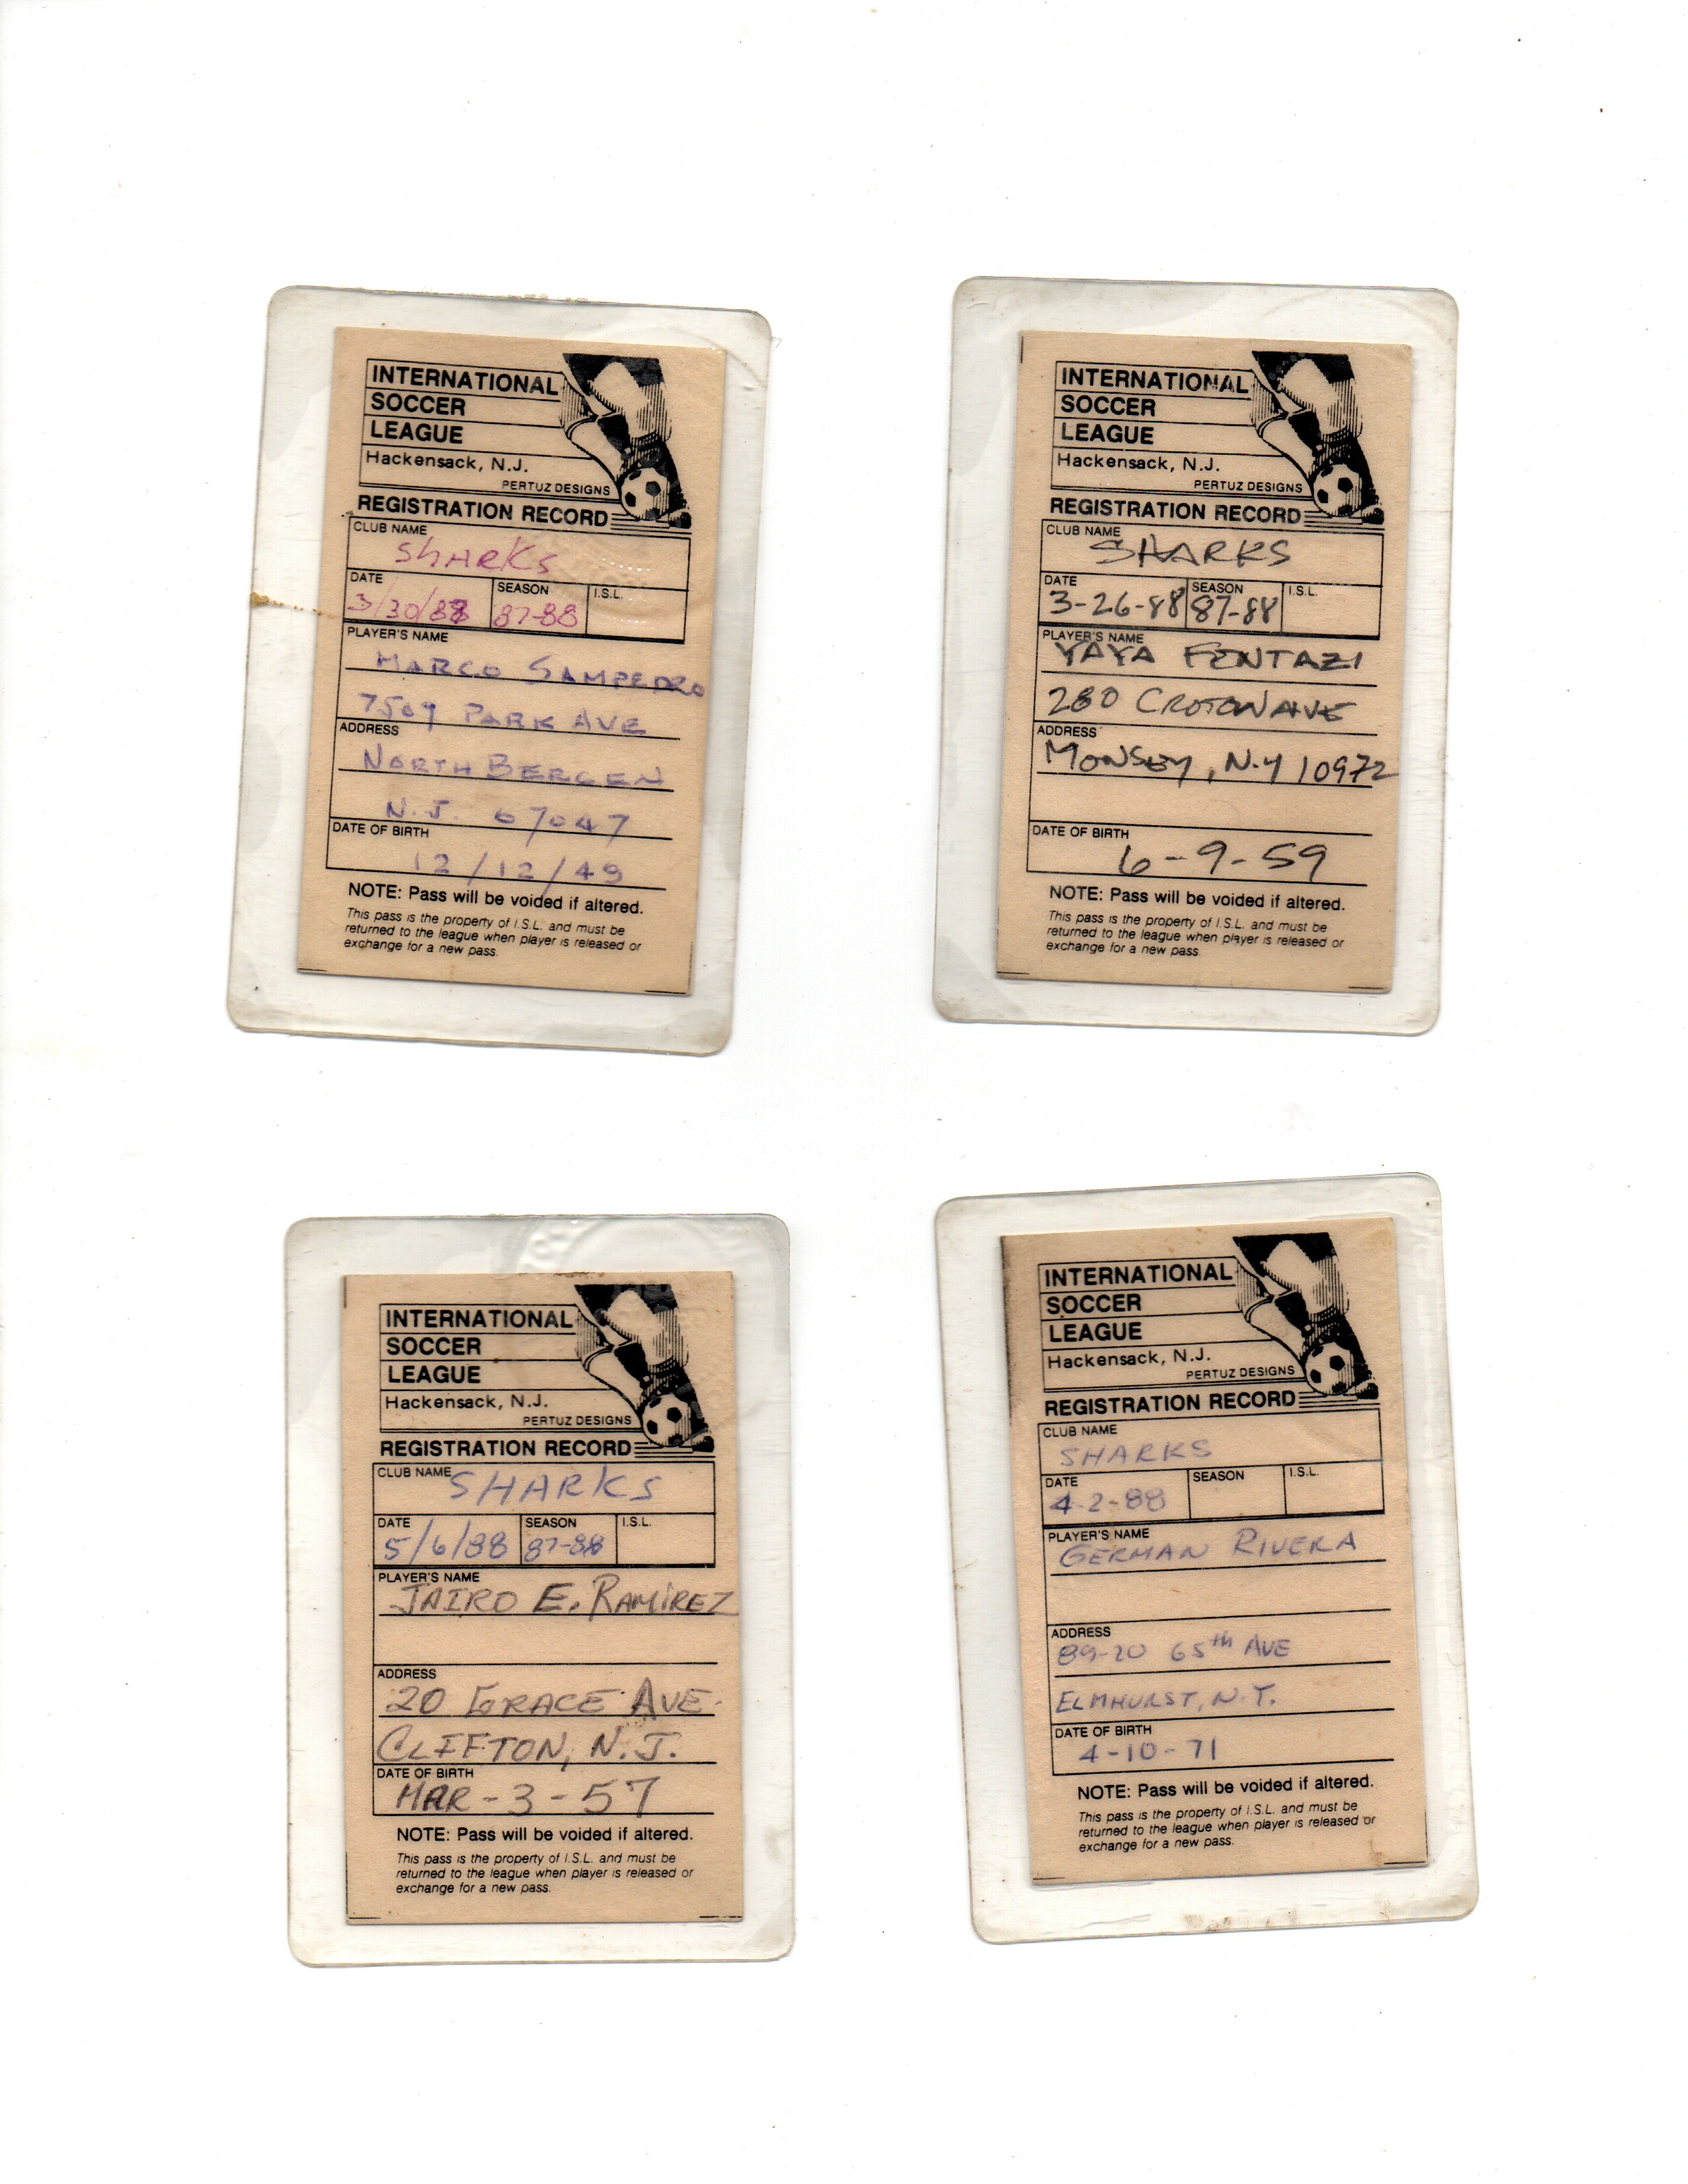 INTERNATIONAL
SOCCER
LEAGUE
Hackensack, N.J.
PERTUZ DESIGNS
REGISTRATION RECORD
CLUB NAME
SHARKS
DATE SEASON I.S.L.
3/30/88 87-88
PLAYER'S NAME
MARCO SAMPEDRO
7509 PARK AVE
ADDRESS
NORTH BERGEN
N.J. 07047
DATE OF BIRTH
12/12/49
NOTE: Pass will be voided if altered.
This pass is the property of I.S.L. and must be
returned to the league when player is released or
exchange for a new pass.
INTERNATIONAL
SOCCER
LEAGUE
Hackensack, N.J.
PERTUZ DESIGNS
REGISTRATION RECORD
CLUB NAME
SHARKS
DATE SEASON I.S.L.
3-26-88 87-88
PLAYER'S NAME
YAYA FENTAZI
280 CROTON AVE
ADDRESS
MONSEY, N.Y 10972
DATE OF BIRTH
6-9-59
NOTE: Pass will be voided if altered.
This pass is the property of I.S.L. and must be
returned to the league when player is released or
exchange for a new pass.
INTERNATIONAL
SOCCER
LEAGUE
Hackensack, N.J.
PERTUZ DESIGNS
REGISTRATION RECORD
CLUB NAME
SHARKS
DATE SEASON I.S.L.
5/6/88 87-88
PLAYER'S NAME
JAIRO E. RAMIREZ
ADDRESS
20 GRACE AVE.
CLIFTON, N.J.
DATE OF BIRTH
MAR-3-57
NOTE: Pass will be voided if altered.
This pass is the property of I.S.L. and must be
returned to the league when player is released or
exchange for a new pass.
INTERNATIONAL
SOCCER
LEAGUE
Hackensack, N.J.
PERTUZ DESIGNS
REGISTRATION RECORD
CLUB NAME
SHARKS
DATE SEASON I.S.L.
4-2-88
PLAYER'S NAME
GERMAN RIVERA
ADDRESS
89-20 65th AVE
ELMHURST, N.Y.
DATE OF BIRTH
4-10-71
NOTE: Pass will be voided if altered.
This pass is the property of I.S.L. and must be
returned to the league when player is released or
exchange for a new pass.